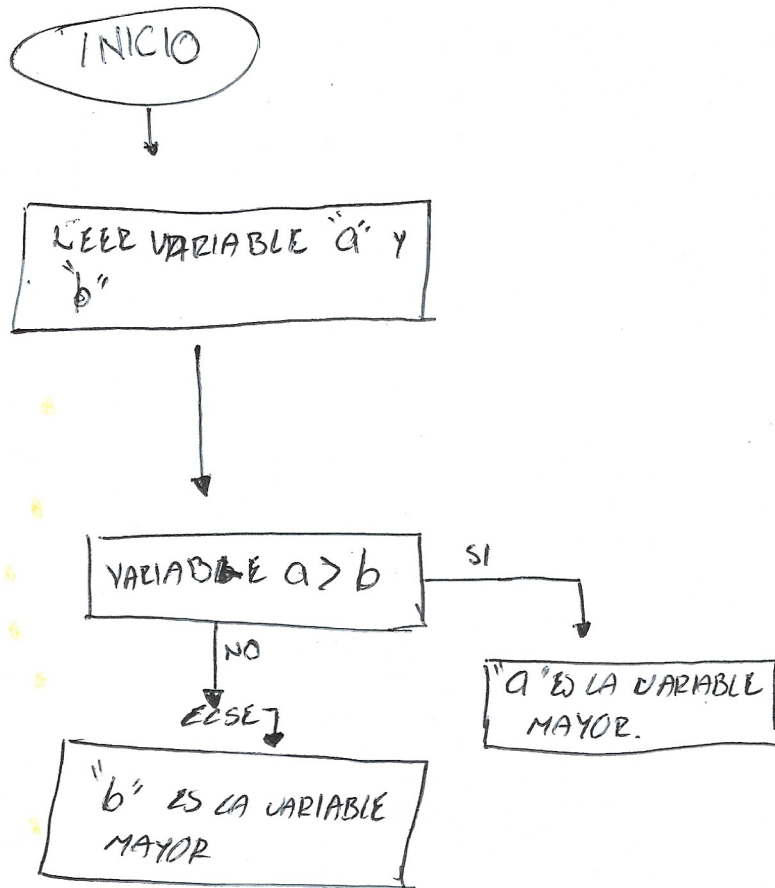 INICIO
LEER VARIABLE "a" Y
"b"
VARIABLE a > b
SI
NO
ELSE
"a" ES LA VARIABLE
MAYOR.
"b" ES LA VARIABLE
MAYOR